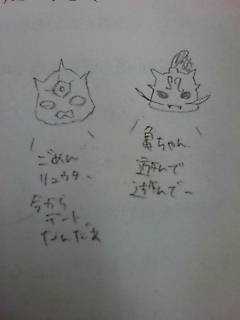 ごめん
リュウター
今から
デート
なんだぁ
亀ちゃん
遊んで
遊んでー